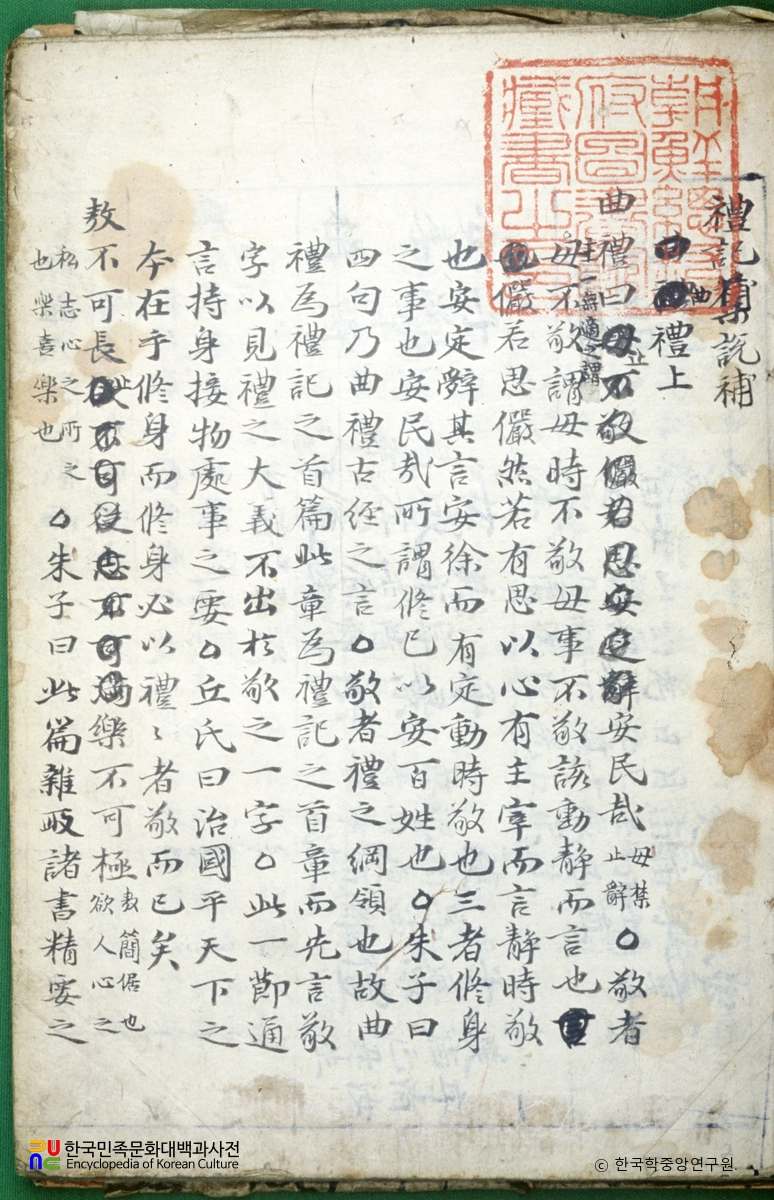 朝鮮總督府圖書館藏書之印
禮記集說補
曲禮上
曲禮曰毋不敬儼若思安定辭安民哉毋禁止辭○敬者
主一無適之謂
毋不敬謂毋時不敬毋事不敬該動静而言也
儼若思儼然若有思以心有主宰而言静時敬
也安定辭其言安徐而有定動時敬也三者修身
之事也安民哉所謂修已以安百姓也○朱子曰
四句乃曲禮古經之言○敬者禮之綱領也故曲
禮爲禮記之首篇此章爲禮記之首章而先言敬
字以見禮之大義不出於敬之一字○此一節通
言持身接物處事之要○丘氏曰治國平天下之
本在乎修身而修身必以禮〻者敬而已矣
敖不可長欲不可從志不可滿樂不可極敖簡倨也欲人心之
私志心之所之也樂喜樂也○朱子曰此篇雜取諸書精要之
한국민족문화대백과사전
Encyclopedia of Korean Culture
© 한국학중앙연구원